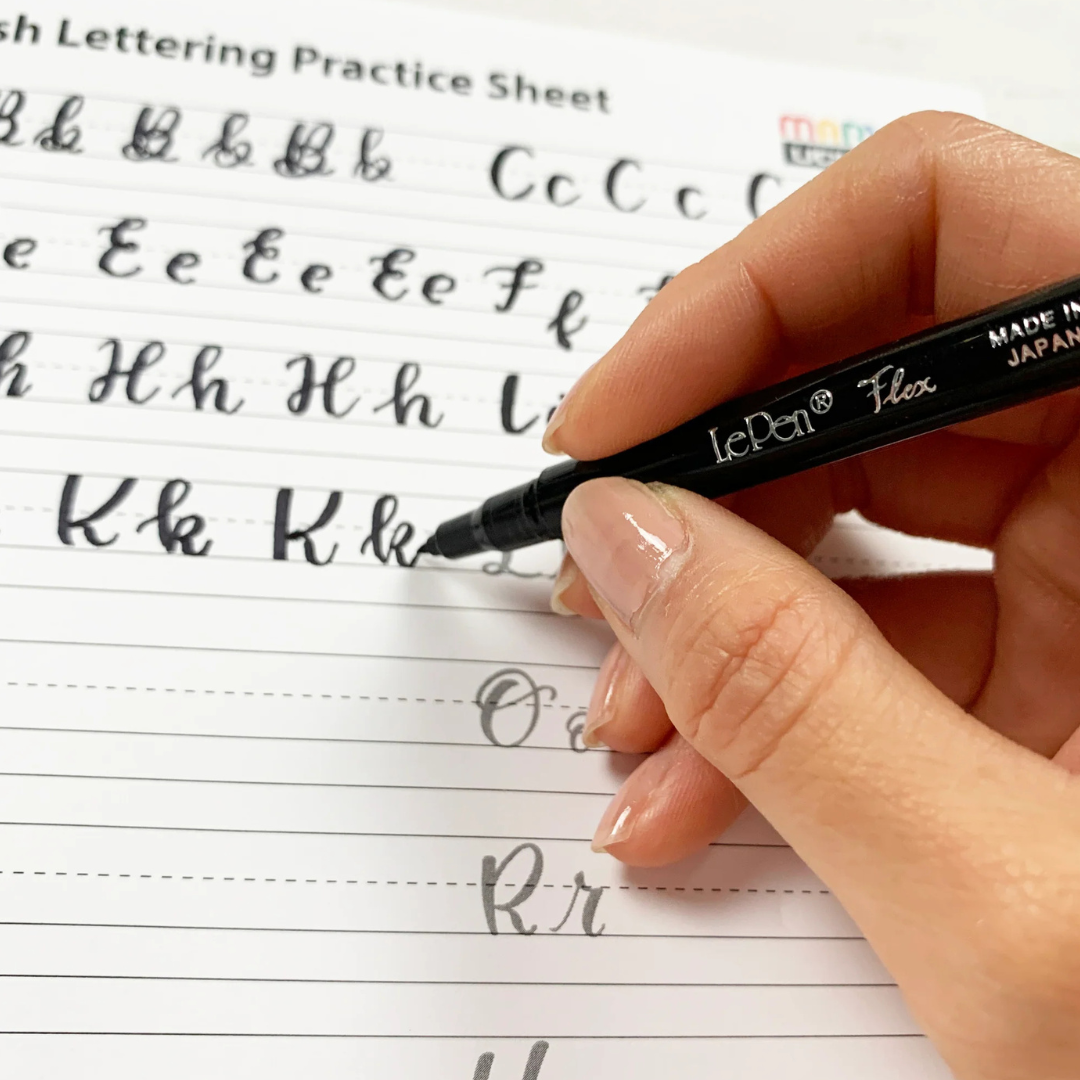 Lettering Practice Sheet
B b B b B b C c C c C
e E e E e E e F f
h H h H h I i
K k K k L
O o
R r
LePen® Flex MADE IN
JAPAN